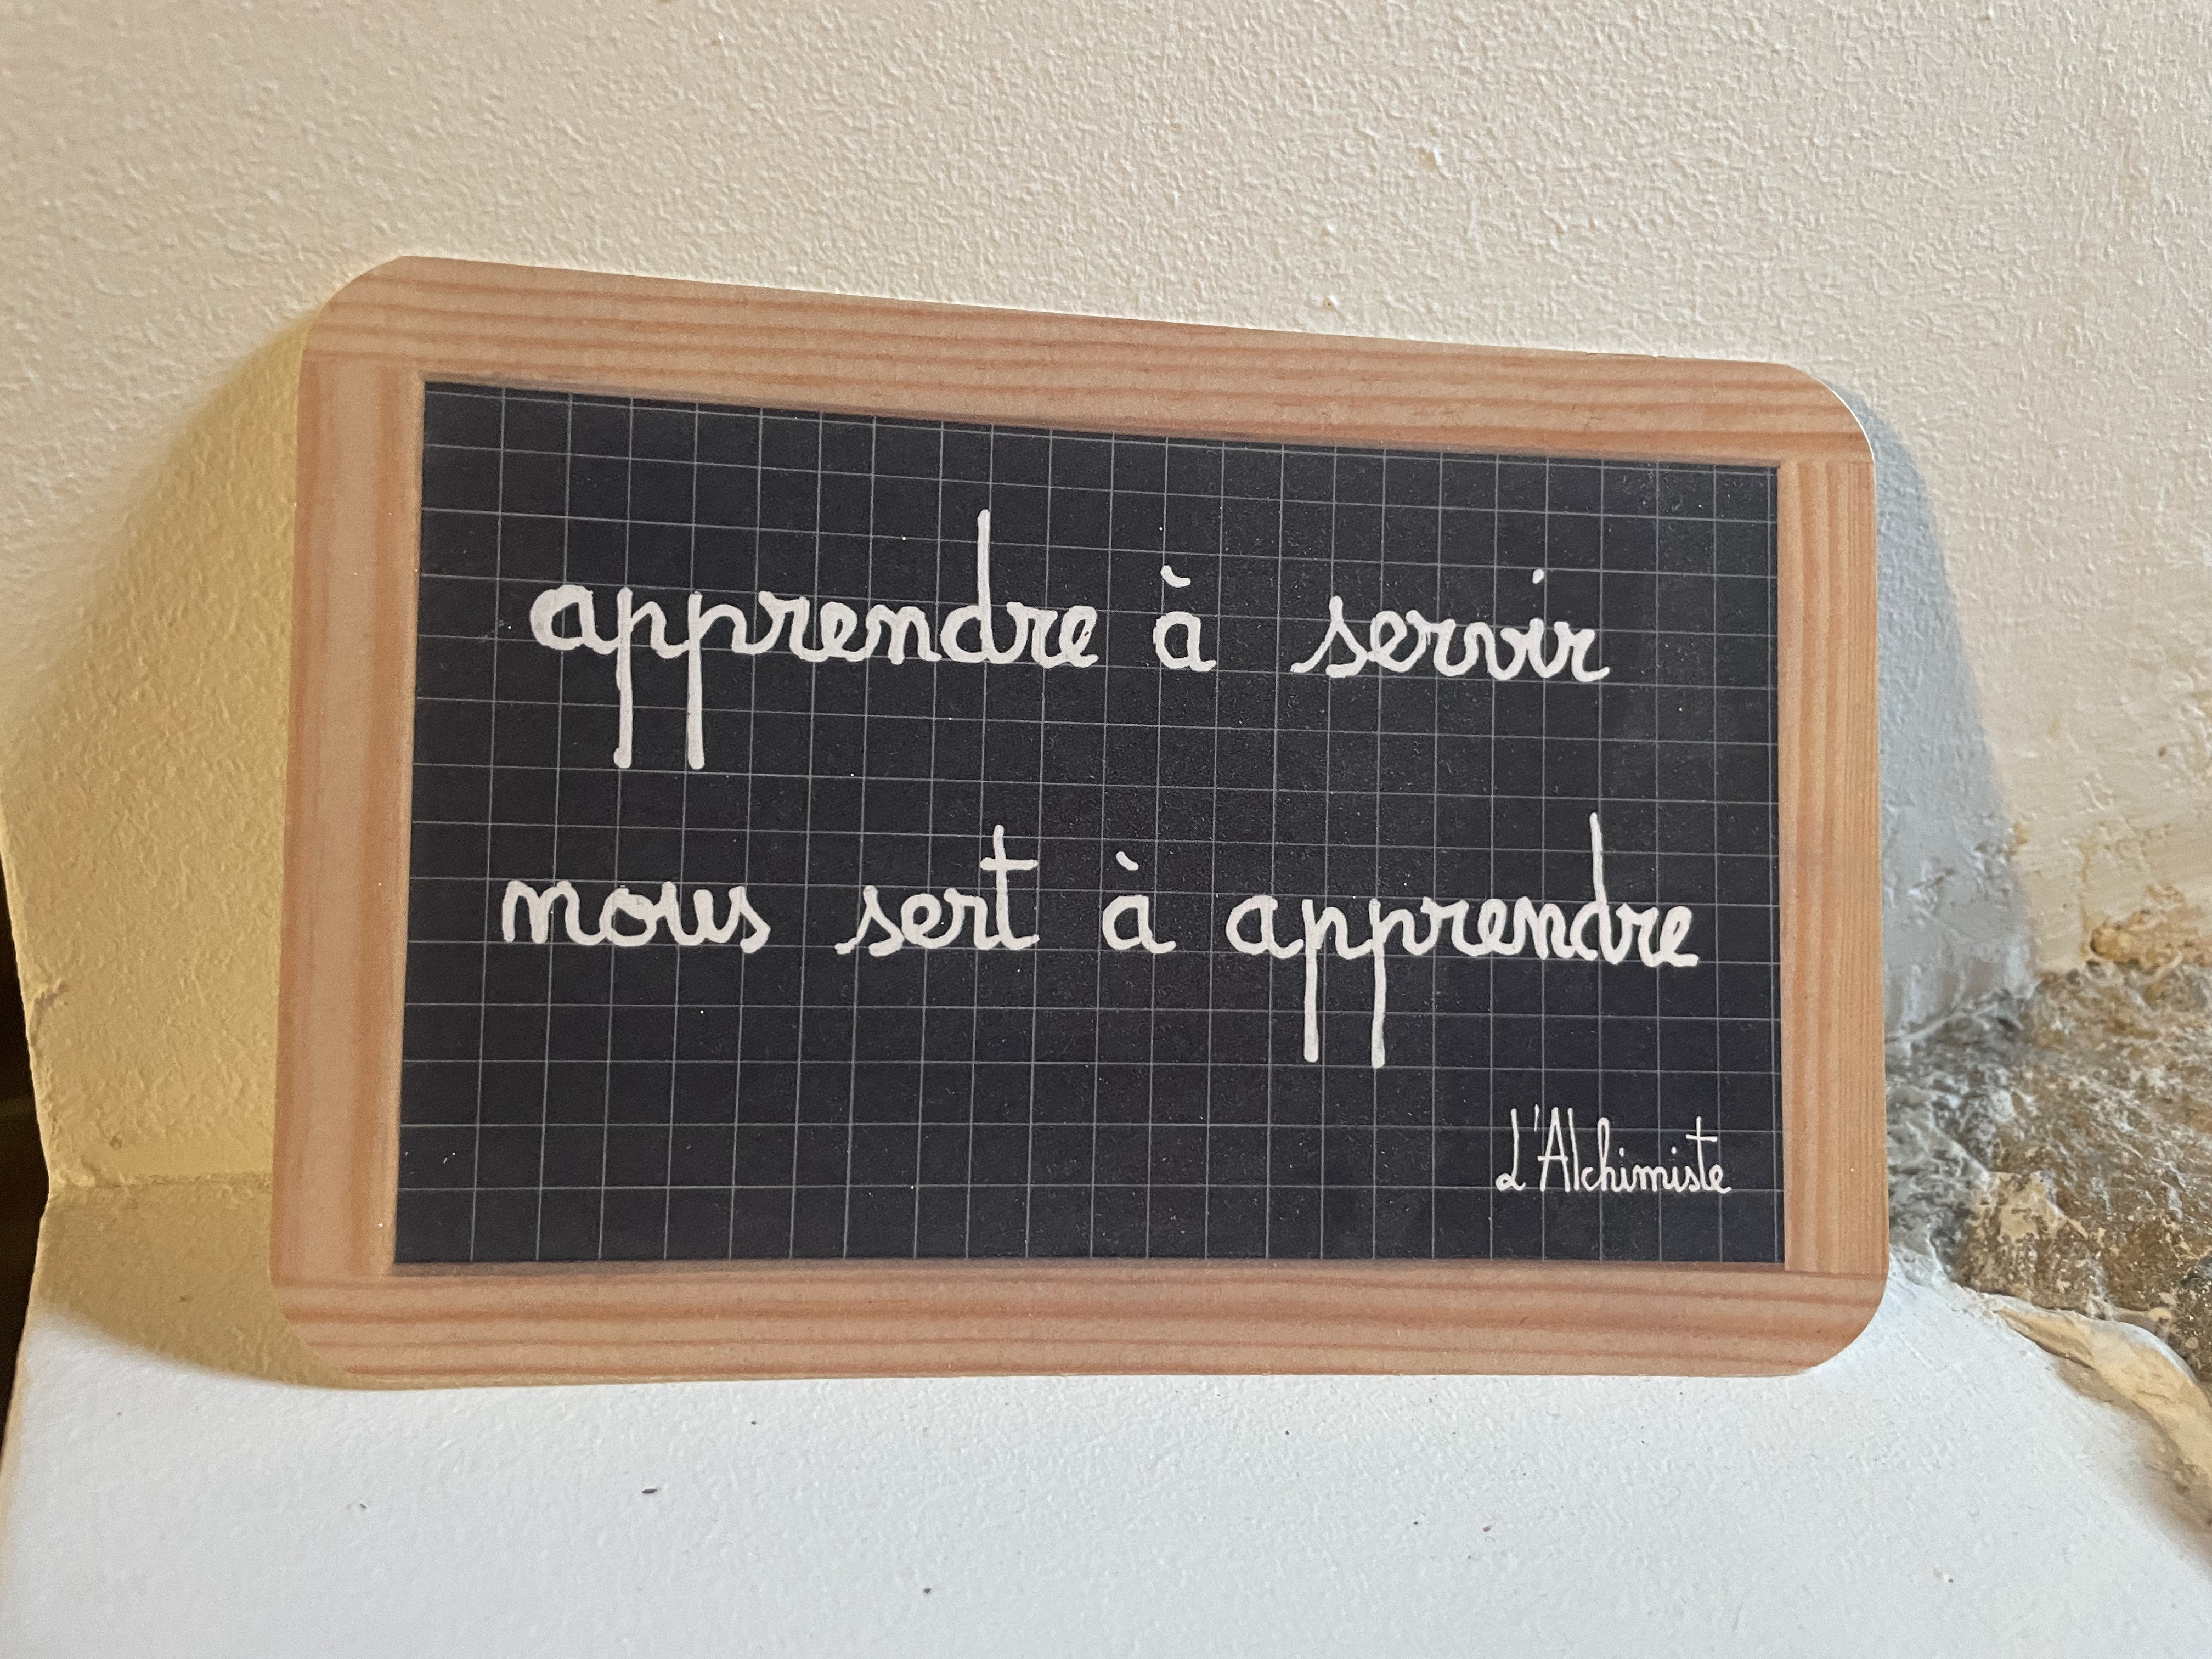 apprendre à servir
nous sert à apprendre
L'Alchimiste